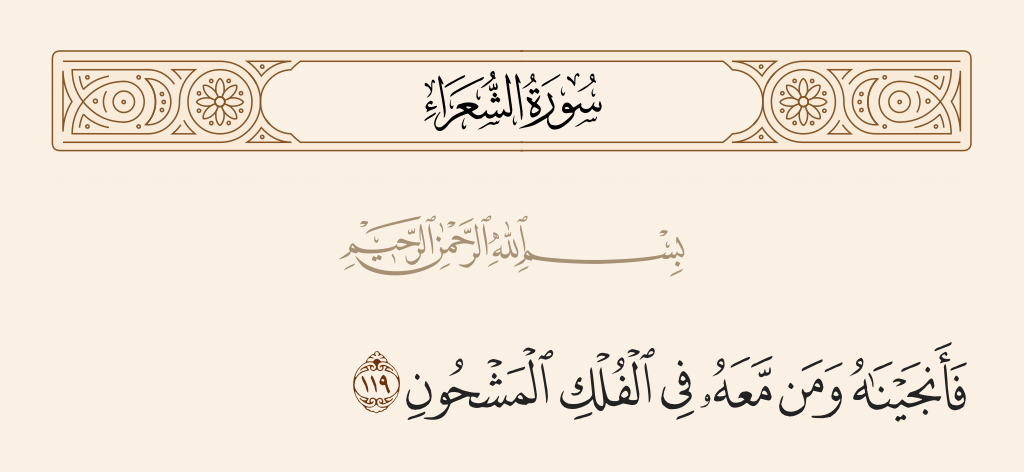 سُورَةُ الشُّعَرَاءِ
بِسْمِ ٱللَّهِ ٱلرَّحْمَٰنِ ٱلرَّحِيمِ
فَأَنجَيْنَـٰهُ وَمَن مَّعَهُۥ فِى ٱلْفُلْكِ ٱلْمَشْحُونِ ١١٩